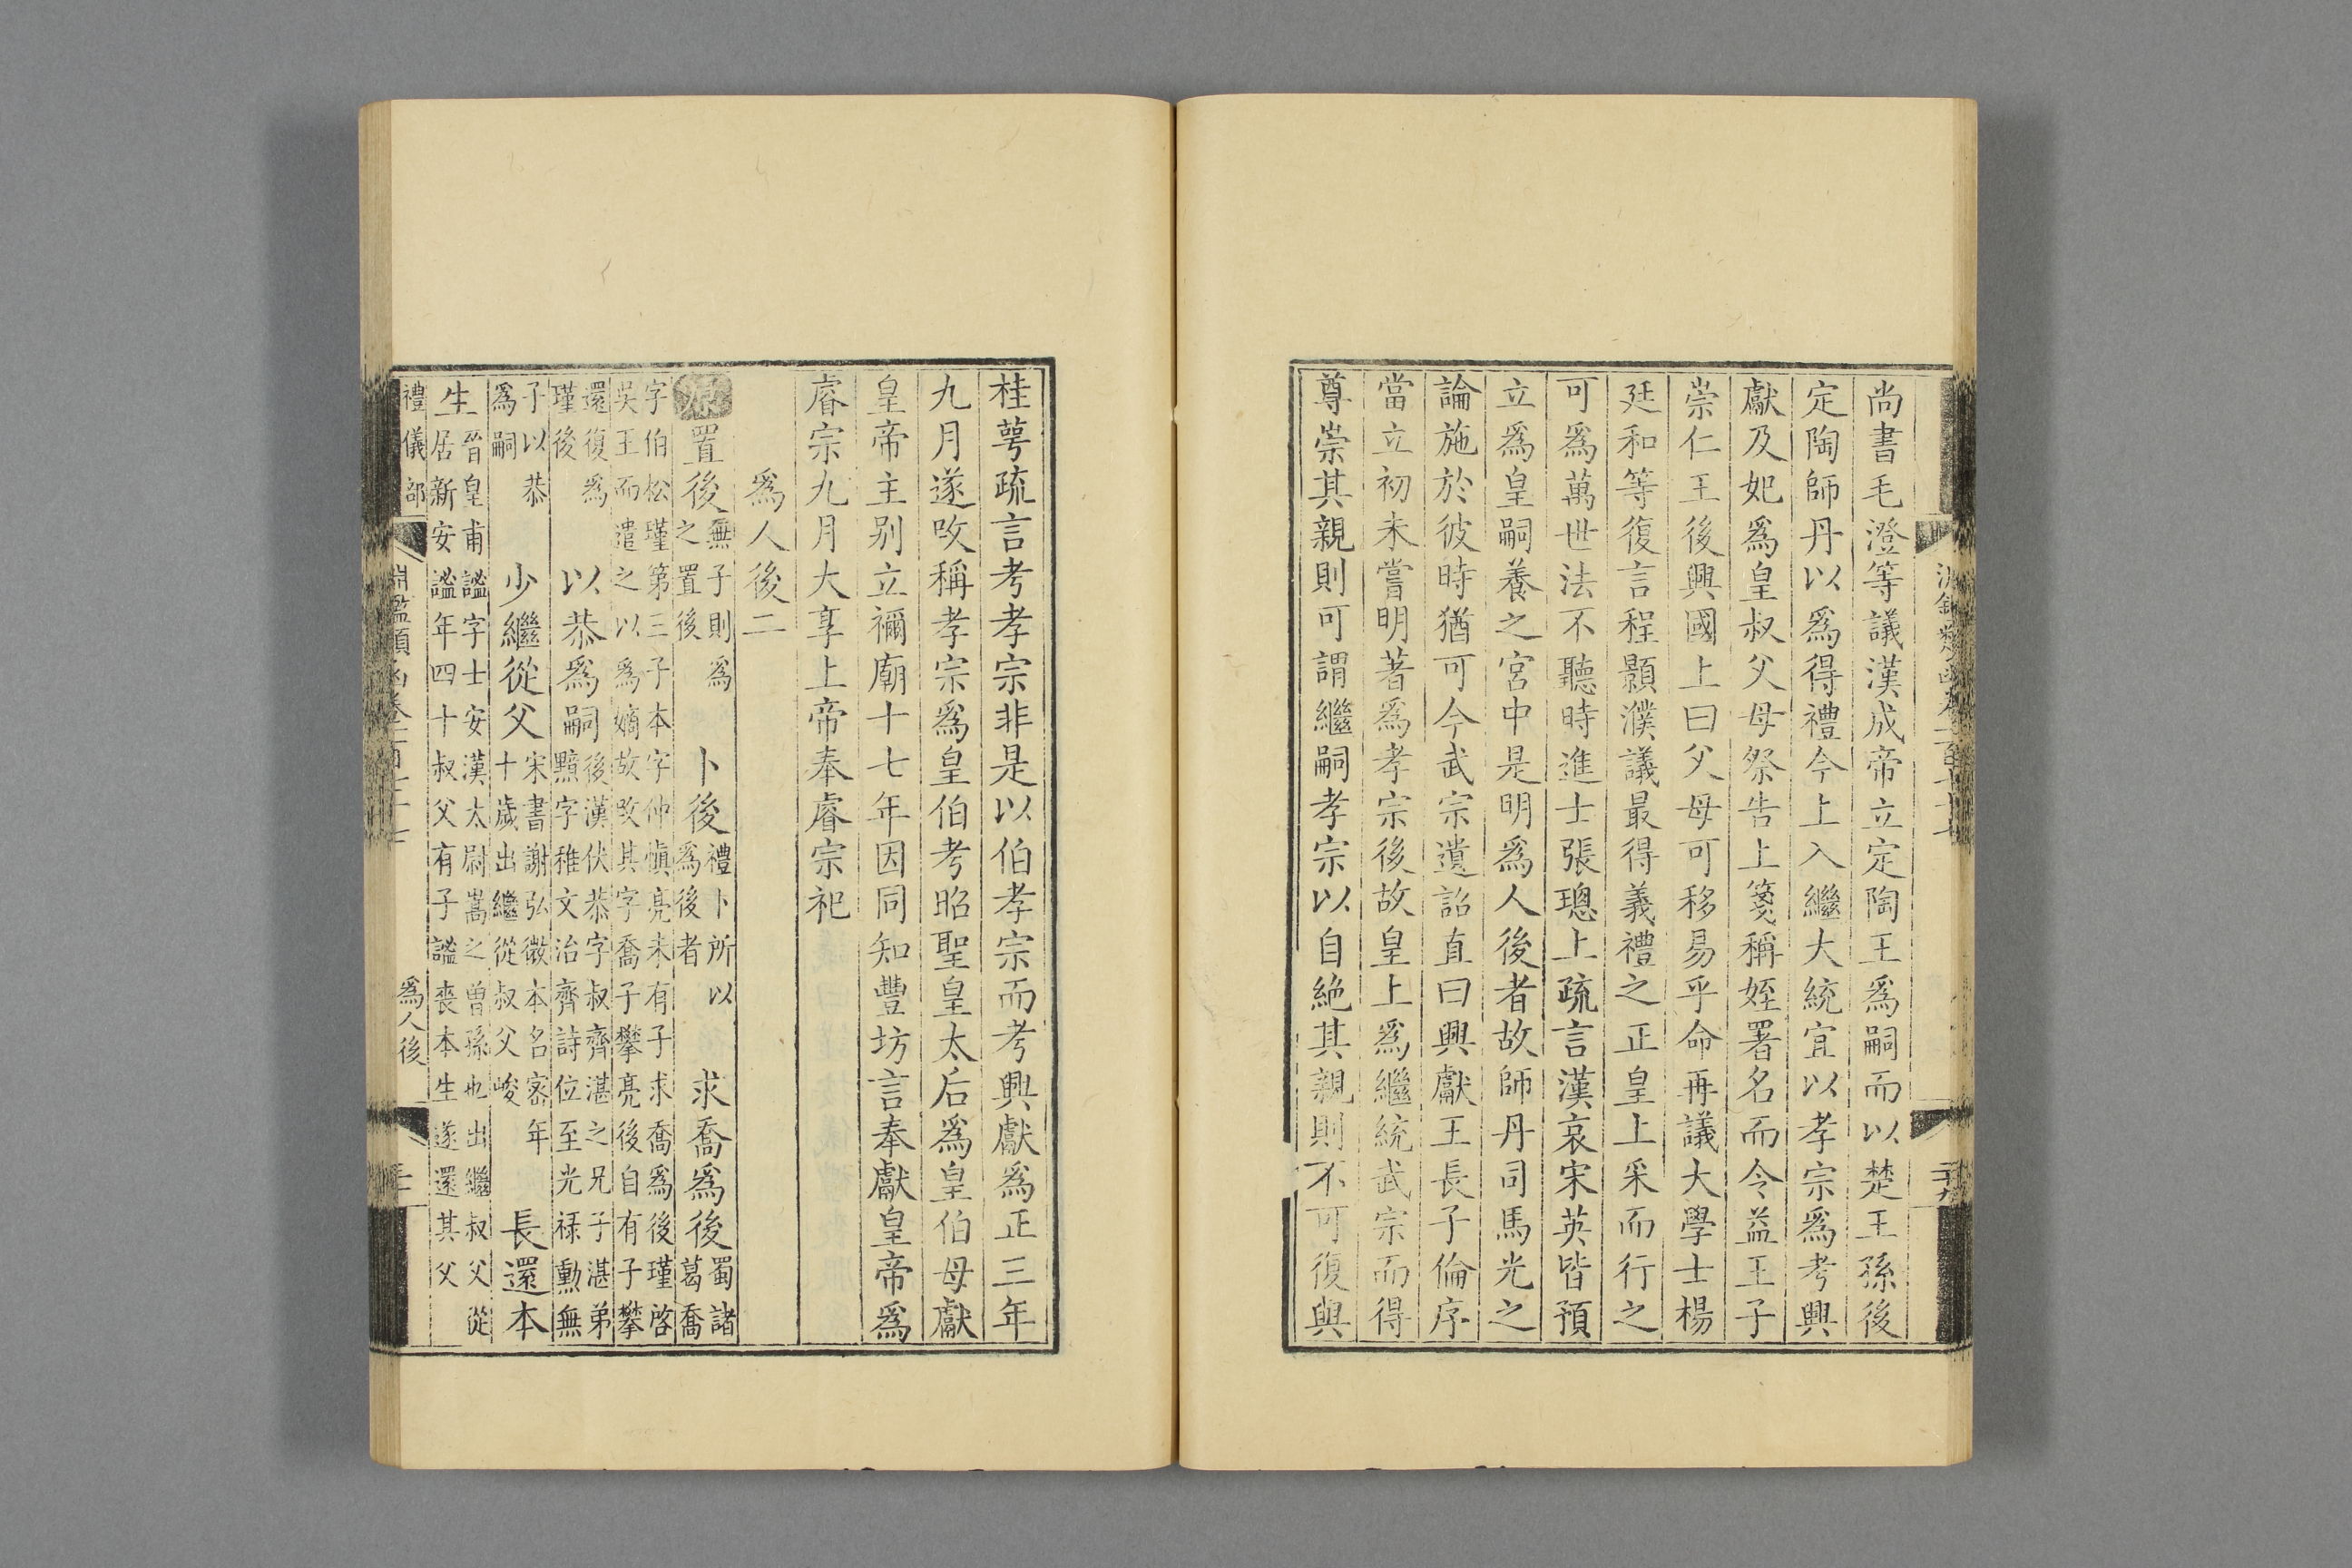 尚書毛澄等議漢成帝立定陶王爲嗣而以楚王孫後
定陶師丹以爲得禮今上入繼大統宜以孝宗爲考興
獻及妃爲皇叔父母祭告上箋稱姪署名而令益王子
崇仁王後興國上曰父母可移易乎命再議大學士楊
廷和等復言程顥濮議最得義禮之正皇上采而行之
可爲萬世法不聽時進士張璁上疏言漢哀宋英皆預
立爲皇嗣養之宮中是明爲人後者故師丹司馬光之
論施於彼時猶可今武宗遺詔直曰興獻王長子倫序
當立初未嘗明著爲孝宗後故皇上爲繼統武宗而得
尊崇其親則可謂繼嗣孝宗以自絕其親則不可復與
桂萼疏言考孝宗非是以伯孝宗而考興獻爲正三年
九月遂攺稱孝宗爲皇伯考昭聖皇太后爲皇伯母獻
皇帝主别立禰廟十七年因同知豐坊言奉獻皇帝爲
睿宗九月大享上帝奉睿宗祀
爲人後二
原置後無子則爲之置後 卜後禮卜所以爲後者 求喬爲後蜀諸葛喬
字伯松瑾第三子本字仲愼亮未有子求喬爲後瑾啓
吳王而遣之以爲嫡故攺其字喬子攀亮後自有子攀
還復爲瑾後 以恭爲嗣後漢伏恭字叔齊湛之兄子湛弟黯字稚文治齊詩位至光祿勳無
子以恭爲嗣 少繼從父宋書謝弘微本名密年十歲出繼從叔父峻 長還本
生晉皇甫謐字士安漢太尉嵩之曾孫也出繼叔父從
居新安謐年四十叔父有子謐喪本生遂還其父
禮儀部 淵鑑類函卷一百七十七 爲人後 三十